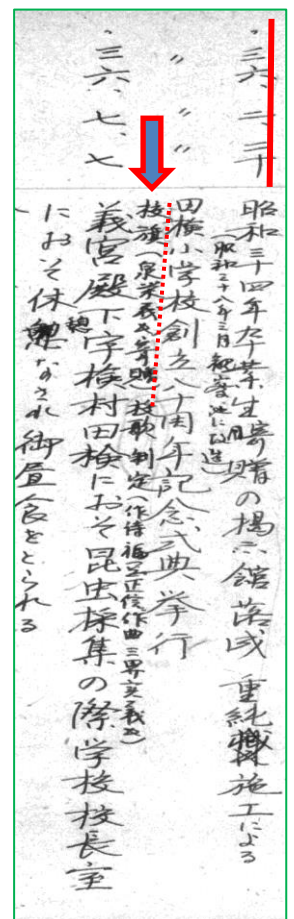 ・三六、二、二十
昭和三十四年卒業生寄贈の掲示館落成 重純機施工による
(昭和三十八年三月観察池に改造)
〃 〃 〃
田検小学校創立八十周年記念式典挙行
校旗(泉米義成寄贈)校歌制定(作侍福里正信作曲三界実義成)
・三六、七、七
義宮殿下宇検村田検におそ昆虫採集の際学校校長室
におそ休憩なされ御昼食をとられる